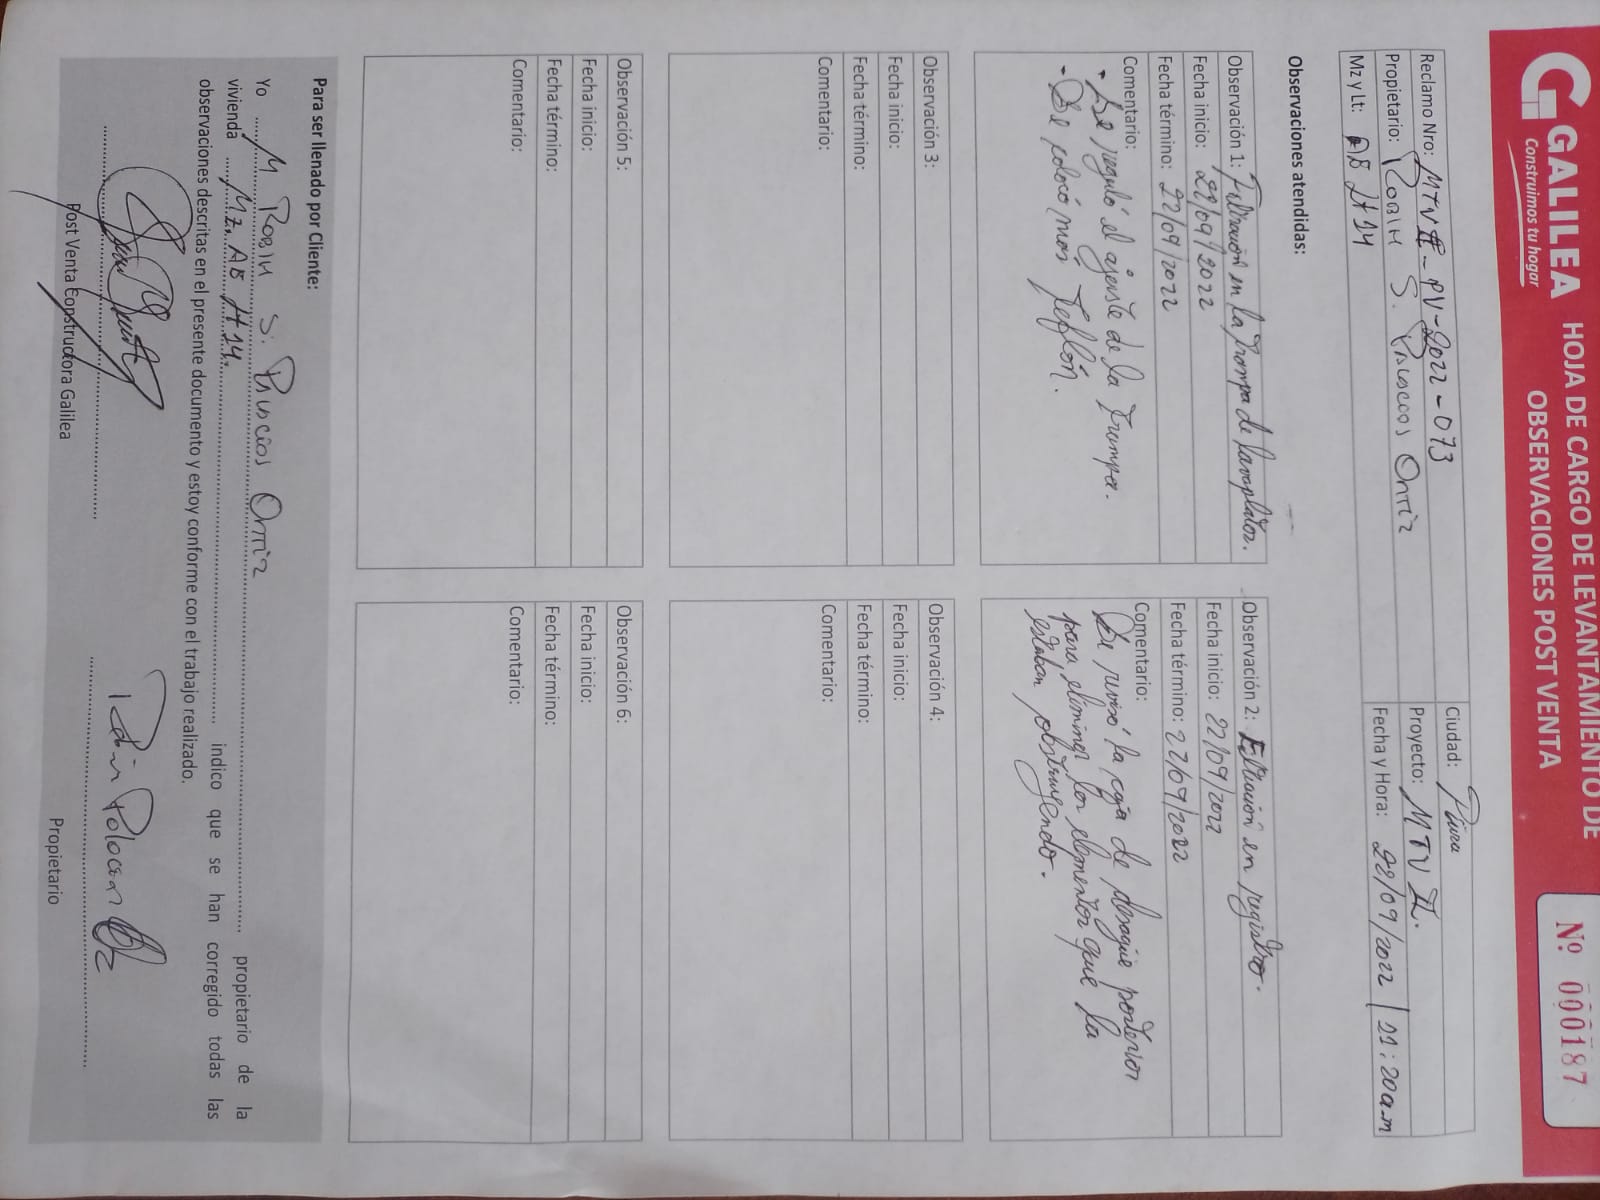 GALILEA
Construimos tu hogar
HOJA DE CARGO DE LEVANTAMIENTO DE
OBSERVACIONES POST VENTA
Nº 000187
Reclamo Nro: MTVII-PV-2022-073
Ciudad: Piura
Propietario: S. Ortiz
Proyecto: MTV II.
Mz y Lt: AB Lt 14
Fecha y Hora: 22/09/2022 | 11:20am
Observaciones atendidas:
Observación 1: Filtración en la trampa de lavaplatos.
Fecha inicio: 22/09/2022
Fecha término: 22/09/2022
Comentario:
- Se reguló el ajuste de la trampa.
- Se colocó más teflón.
Observación 2: en registro.
Fecha inicio: 22/09/2022
Fecha término: 22/09/2022
Comentario:
Se revisó la caja de desagüe posterior
para eliminar los elementos que la
estaban obstruyendo.
Observación 3:
Fecha inicio:
Fecha término:
Comentario:
Observación 4:
Fecha inicio:
Fecha término:
Comentario:
Observación 5:
Fecha inicio:
Fecha término:
Comentario:
Observación 6:
Fecha inicio:
Fecha término:
Comentario:
Para ser llenado por Cliente:
Yo M S. Ortiz propietario de la
vivienda Mz. AB Lt 14. indico que se han corregido todas las
observaciones descritas en el presente documento y estoy conforme con el trabajo realizado.
Post Venta Constructora Galilea
Propietario